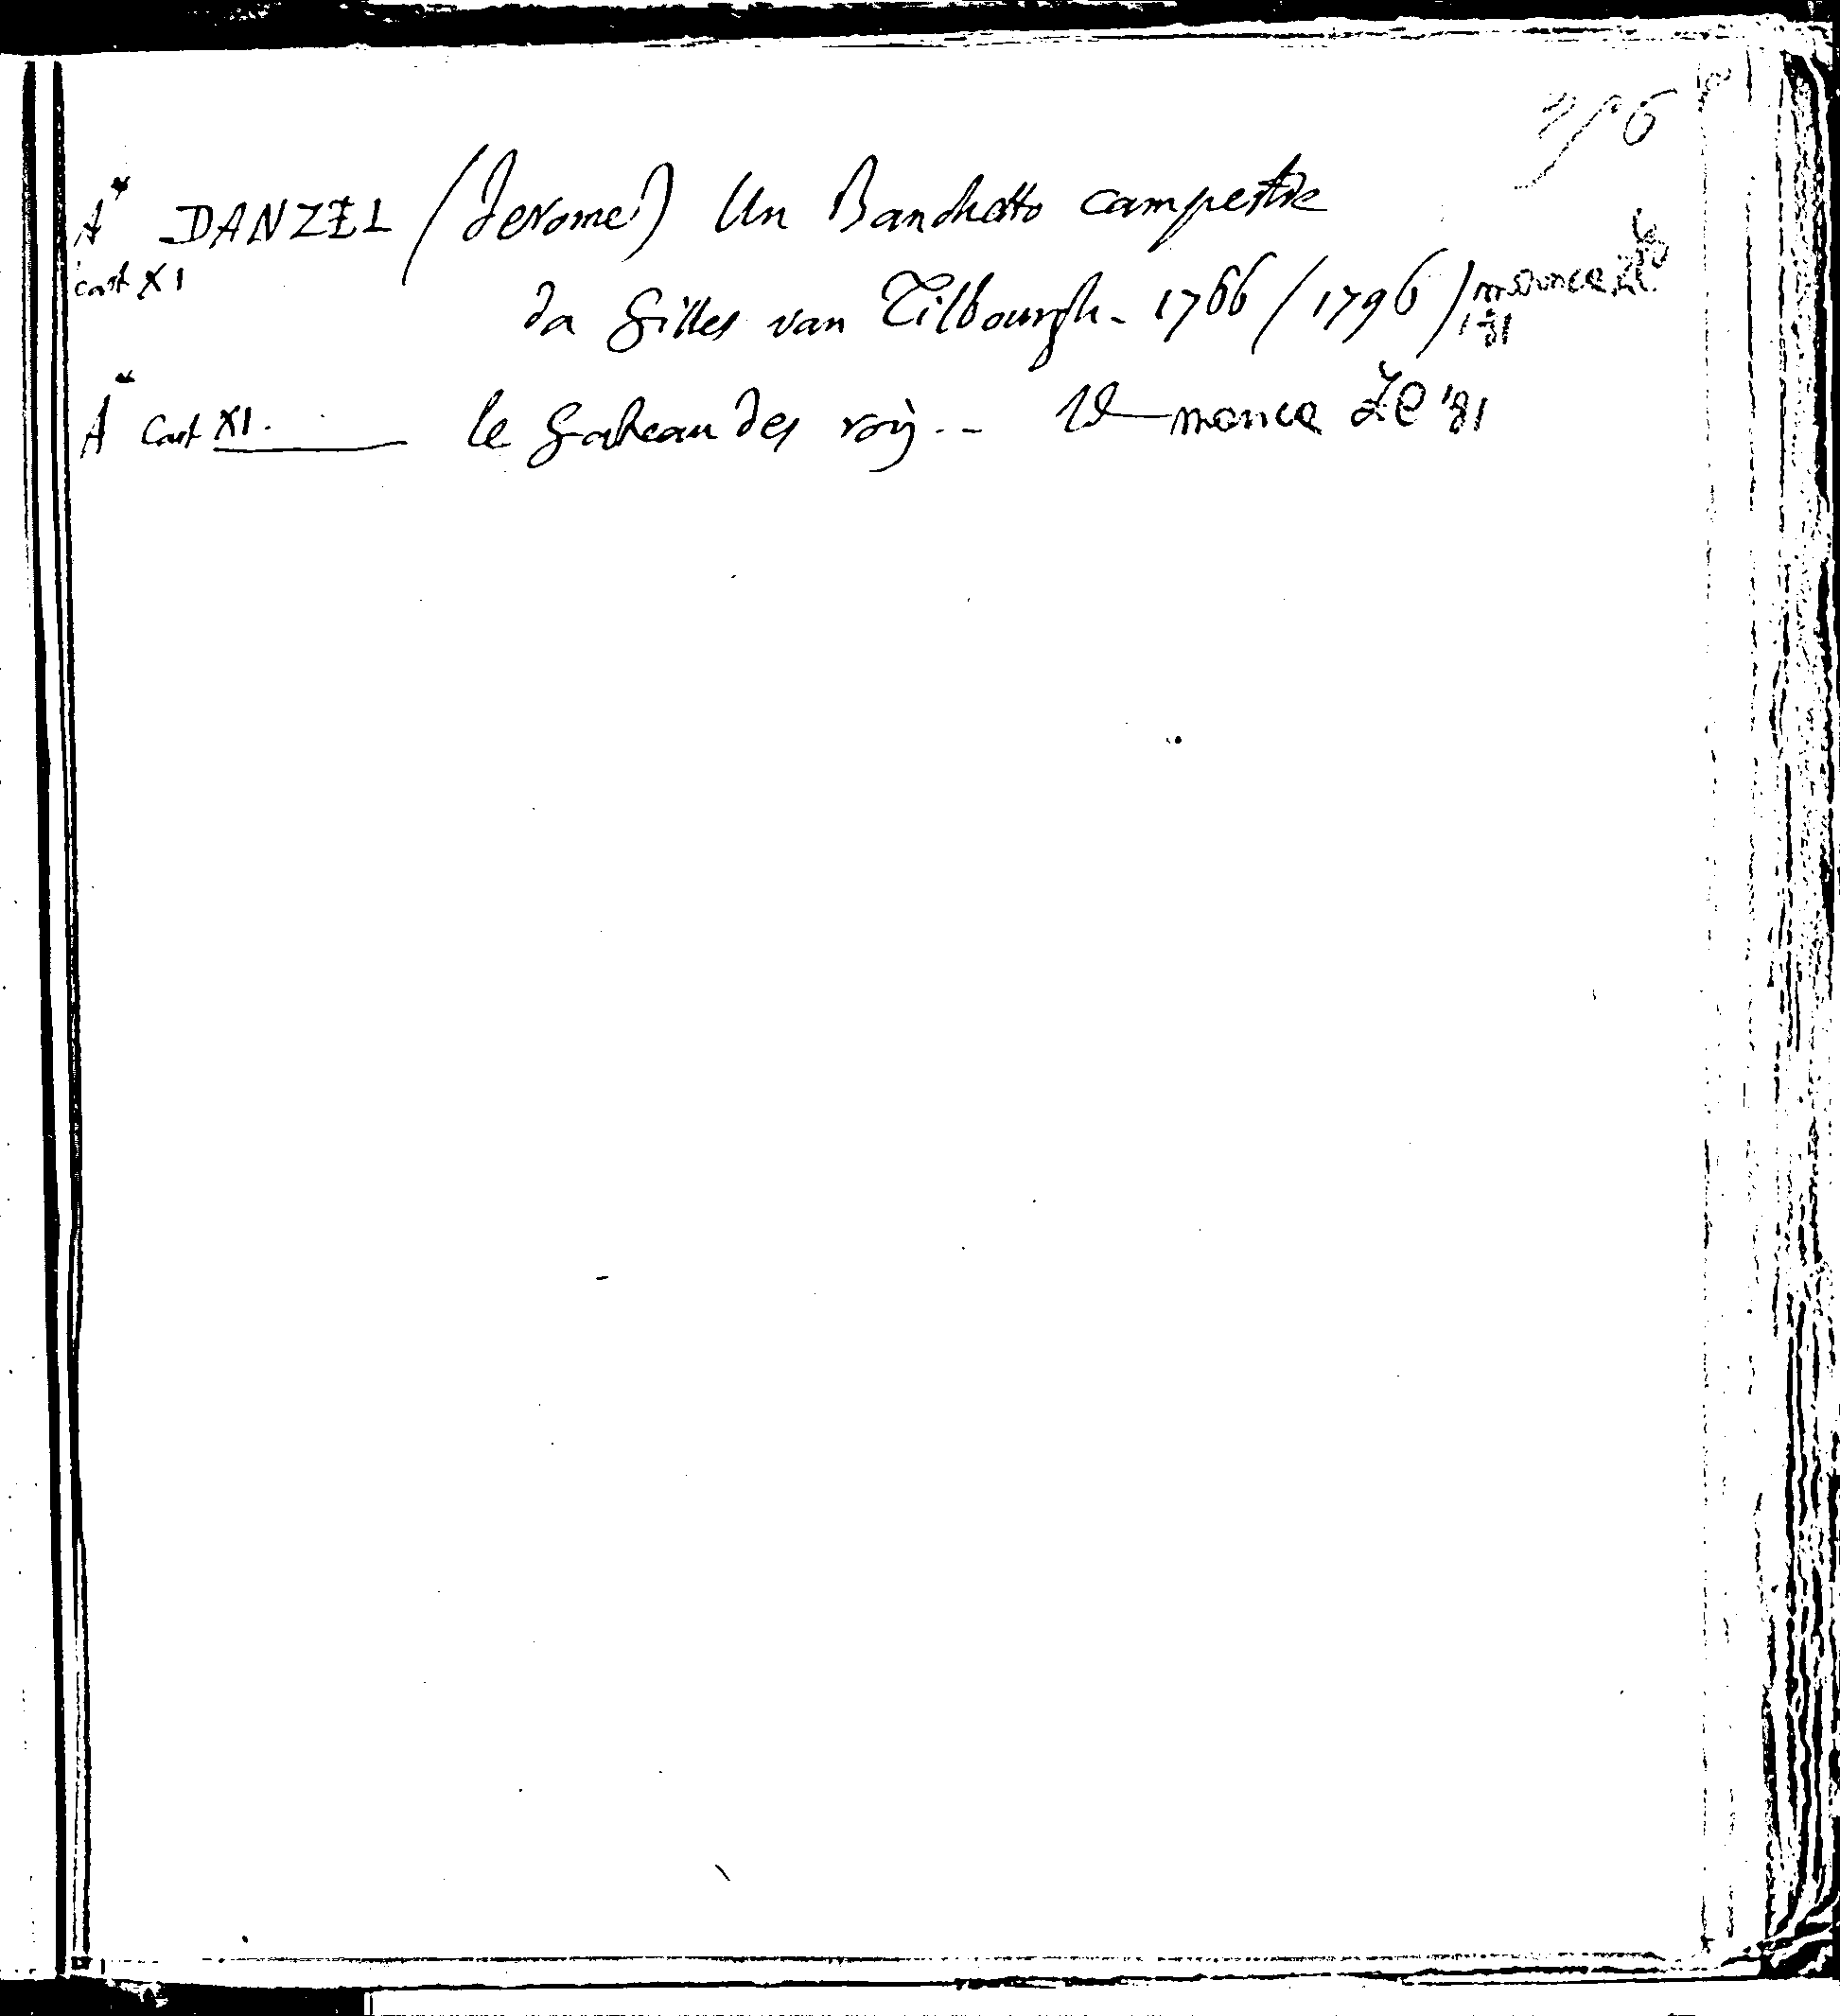 A* DANZEL (Jerome) Un Banchetto campestre
cart XI
da Gilles van Tilbourgh - 1766 (1796) manca
1981
A* cart XI. ——— le gateau des roÿ -- Id — manca '81